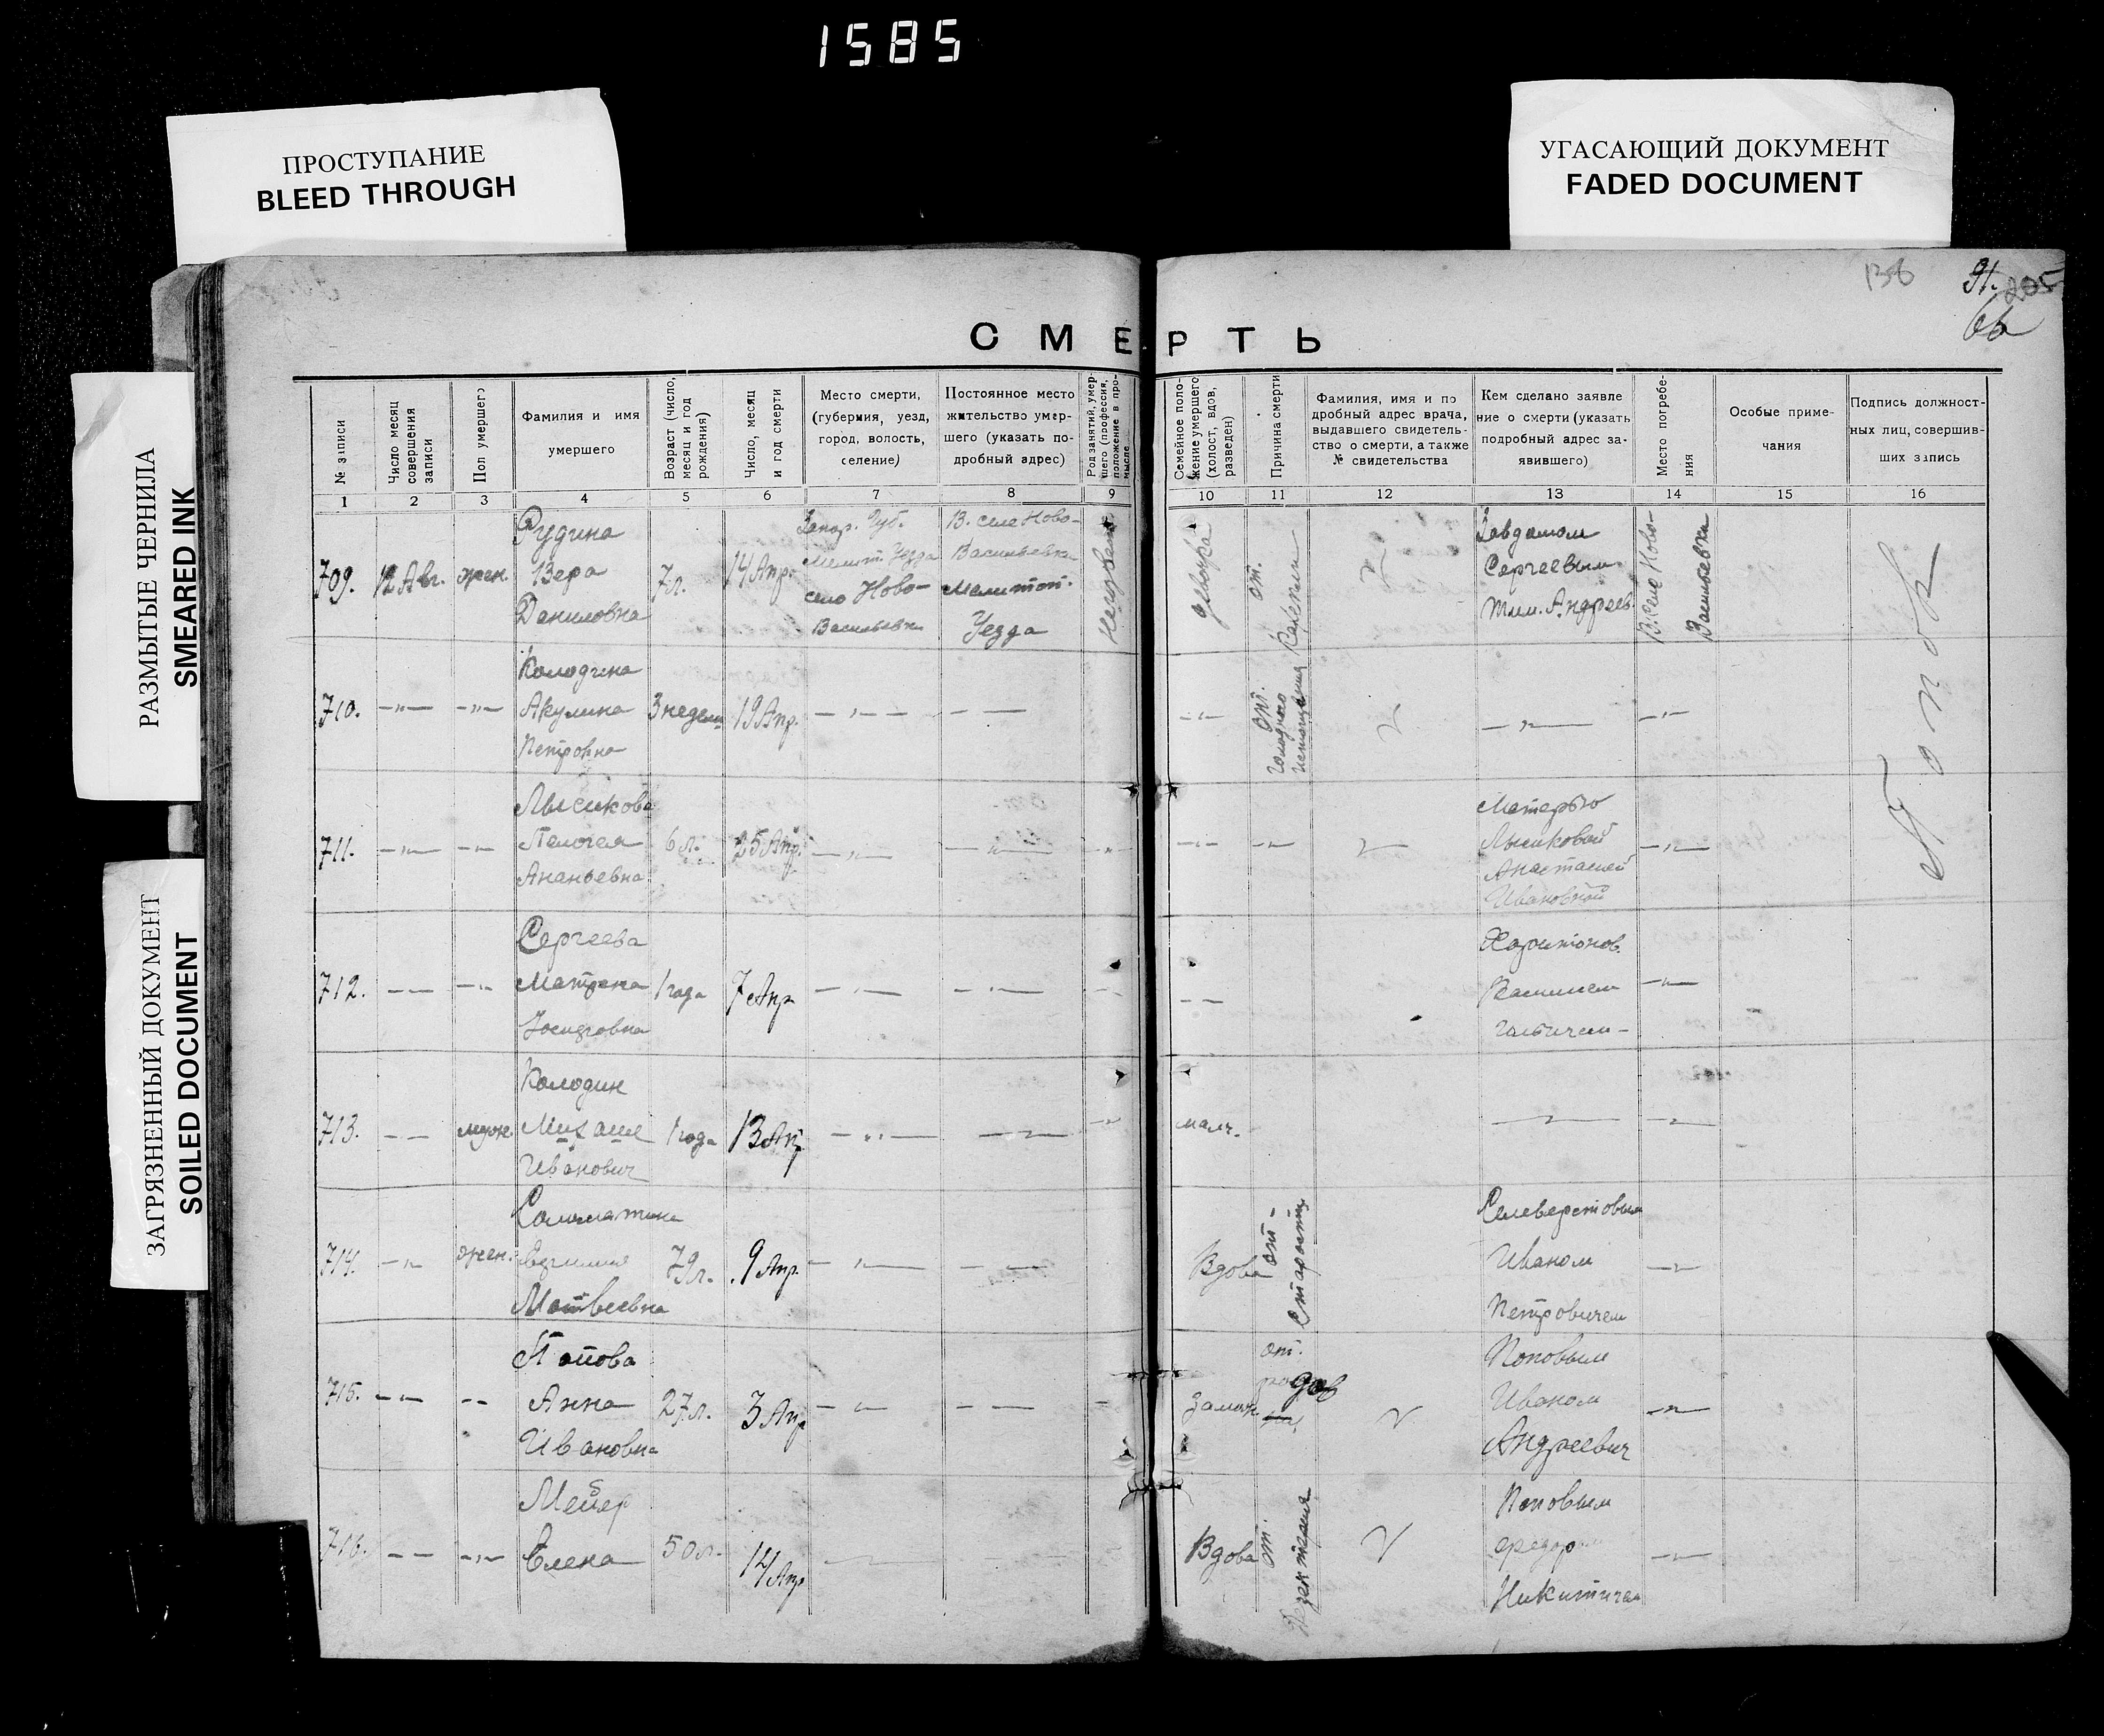 1585
ПРОСТУПАНИЕ
BLEED THROUGH
УГАСАЮЩИЙ ДОКУМЕНТ
FADED DOCUMENT
РАЗМЫТЫЕ ЧЕРНИЛА
SMEARED INK
ЗАГРЯЗНЕННЫЙ ДОКУМЕНТ
SOILED DOCUMENT
136
91.
205
СМЕРТЬ
№ записи
Число месяц
совершения
записи
Пол умершего
Фамилия и имя
умершего
Возраст (число,
месяц и год
рождения)
Число, месяц
и год смерти
Место смерти,
(губерния, уезд,
город, волость,
селение)
Постоянное место
жительство умер-
шего (указать по-
дробный адрес)
Род занятий, умер-
шего (профессия,
положение в про-
мысле
Семейное поло-
жение умершего
(холост, вдов,
разведен)
Причина смерти
Фамилия, имя и по
дробный адрес врача,
выдавшего свидетель-
ство о смерти, а также
№ свидетельства
Кем сделано заявле
ние о смерти (указать
подробный адрес за-
явившего)
Место погребе-
ния
Особые приме-
чания
Подпись должност-
ных лиц, совершив-
ших запись
1 2 3 4 5 6 7 8 9 10 11 12 13 14 15 16
709.
12 Авг.
жен.
Рудина
Вера
Даниловна
7 л.
14 Апр.
Запор. Губ.
Мелит. Уезда
село Ново-
Васильевки
В. селе Ново-
Васильевке
Мелитоп.
Уезда
девочка
от.
Завдомом
Сергеевым
Тим. Андреев.
В. селе Ново-
Васильевки
Попов
710.
Колодина
Акулина
Петровна
3 недели
19 Апр.
от.
голодного
истощения
711.
Лысикова
Пелагея
Ананьевна
6 л.
25 Апр.
Матерью
Лысиковой
Анастасией
Ивановной
712.
Сергеева
Матрена
1 года
7 Апр
Харитонов.
713.
муж.
Колодин
Михаил
Иванович
1 года
13 Апр
мальч.
714.
жен.
Матвеевна
79 л.
9 Апр.
Вдова
от -
Старости
Селеверстовым
Иваном
Петровичем
715.
Попова
Анна
Ивановна
27 л.
3 Апр
Замуж
от.
родов
Поповым
Иваном
Андреевич
716.
Мейер
Елена
50 л.
14 Апр
Вдова
от.
Поповым
Никитичем